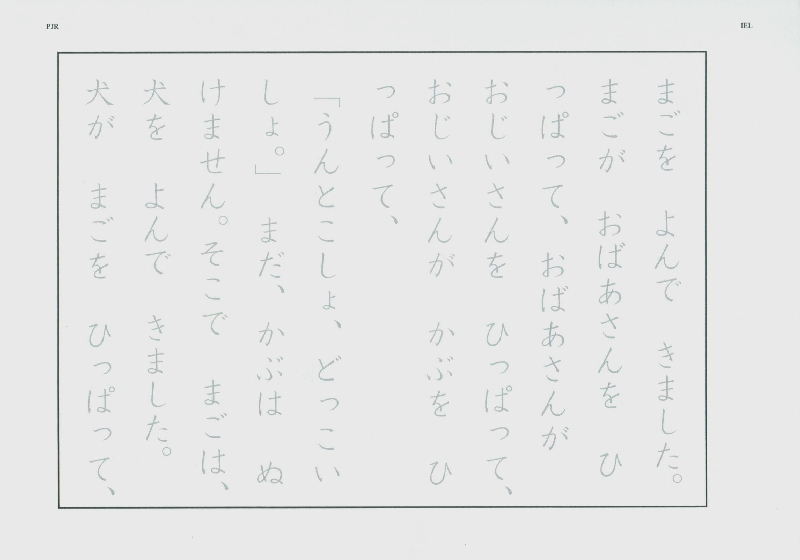 PJR
IEL
まごを　よんで　きました。
まごが　おばあさんを　ひ
っぱって、おばあさんが
おじいさんを　ひっぱって、
おじいさんが　かぶを　ひ
っぱって、
「うんとこしょ、どっこい
しょ。」　まだ、かぶは　ぬ
けません。そこで　まごは、
犬を　よんで　きました。
犬が　まごを　ひっぱって、